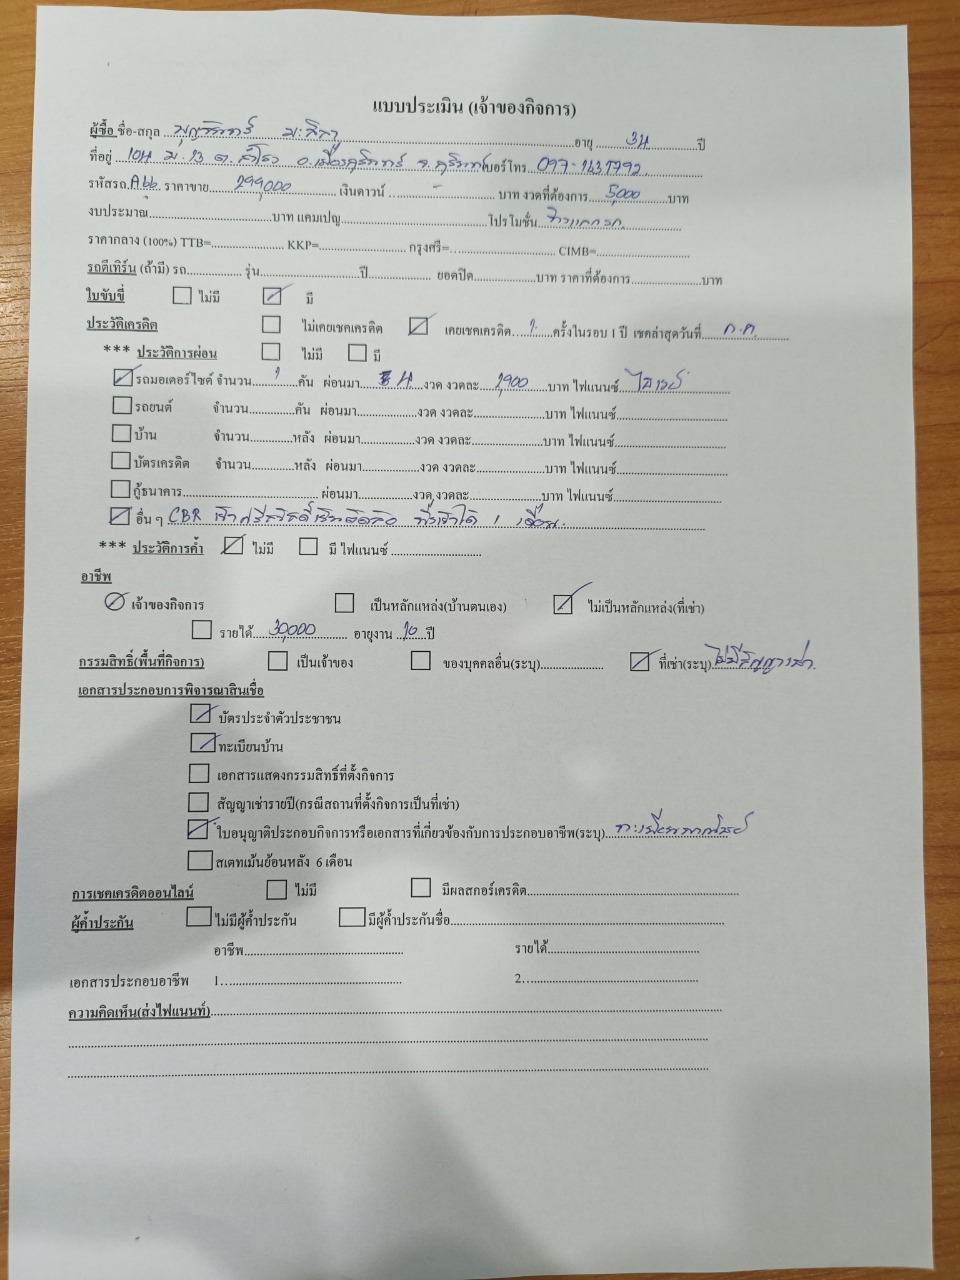 แบบประเมิน (เจ้าของกิจการ)
ผู้ซื้อ ชื่อ-สกุล บุญจันทร์ มะลิลา อายุ 34 ปี
ที่อยู่ 104 ม.13 ต.สำโรง อ.เมืองสุรินทร์ จ.สุรินทร์ เบอร์โทร. 097-1431792
รหัสรถ Abb ราคาขาย 299,000 เงินดาวน์ - บาท งวดที่ต้องการ 5,000 บาท
งบประมาณ บาท แคมเปญ โปรโมชั่น
ราคากลาง (100%) TTB= KKP= กรุงศรี= CIMB=
รถตีเทิร์น (ถ้ามี) รถ รุ่น ปี ยอดปิด บาท ราคาที่ต้องการ บาท
ใบขับขี่ ไม่มี มี
ประวัติเครดิต ไม่เคยเชคเครดิต เคยเชคเครดิต 1 ครั้งในรอบ 1 ปี เชคล่าสุดวันที่ ก.ค.
*** ประวัติการผ่อน ไม่มี มี
รถมอเตอร์ไซต์ จำนวน 1 คัน ผ่อนมา 4 งวด งวดละ 2,900 บาท ไฟแนนซ์
รถยนต์ จำนวน คัน ผ่อนมา งวด งวดละ บาท ไฟแนนซ์
บ้าน จำนวน หลัง ผ่อนมา งวด งวดละ บาท ไฟแนนซ์
บัตรเครดิต จำนวน หลัง ผ่อนมา งวด งวดละ บาท ไฟแนนซ์
กู้ธนาคาร ผ่อนมา งวด งวดละ บาท ไฟแนนซ์
อื่น ๆ CBR เข้าศรีสวัสดิ์เงินติดล้อ พึ่งเข้าได้ 1 เดือน.
*** ประวัติการค้ำ ไม่มี มี ไฟแนนซ์
อาชีพ
เจ้าของกิจการ เป็นหลักแหล่ง(บ้านตนเอง) ไม่เป็นหลักแหล่ง(ที่เช่า)
รายได้ 30,000 อายุงาน 10 ปี
กรรมสิทธิ์(พื้นที่กิจการ) เป็นเจ้าของ ของบุคคลอื่น(ระบุ) ที่เช่า(ระบุ) ไม่มีสัญญาเช่า.
เอกสารประกอบการพิจารณาสินเชื่อ
บัตรประจำตัวประชาชน
ทะเบียนบ้าน
เอกสารแสดงกรรมสิทธิ์ที่ตั้งกิจการ
สัญญาเช่ารายปี(กรณีสถานที่ตั้งกิจการเป็นที่เช่า)
ใบอนุญาติประกอบกิจการหรือเอกสารที่เกี่ยวข้องกับการประกอบอาชีพ(ระบุ) ทะเบียนพาณิชย์
สเตทเม้นย้อนหลัง 6 เดือน
การเชคเครดิตออนไลน์ ไม่มี มีผลสกอร์เครดิต
ผู้ค้ำประกัน ไม่มีผู้ค้ำประกัน มีผู้ค้ำประกันชื่อ
อาชีพ รายได้
เอกสารประกอบอาชีพ 1. 2.
ความคิดเห็น(ส่งไฟแนนท์)